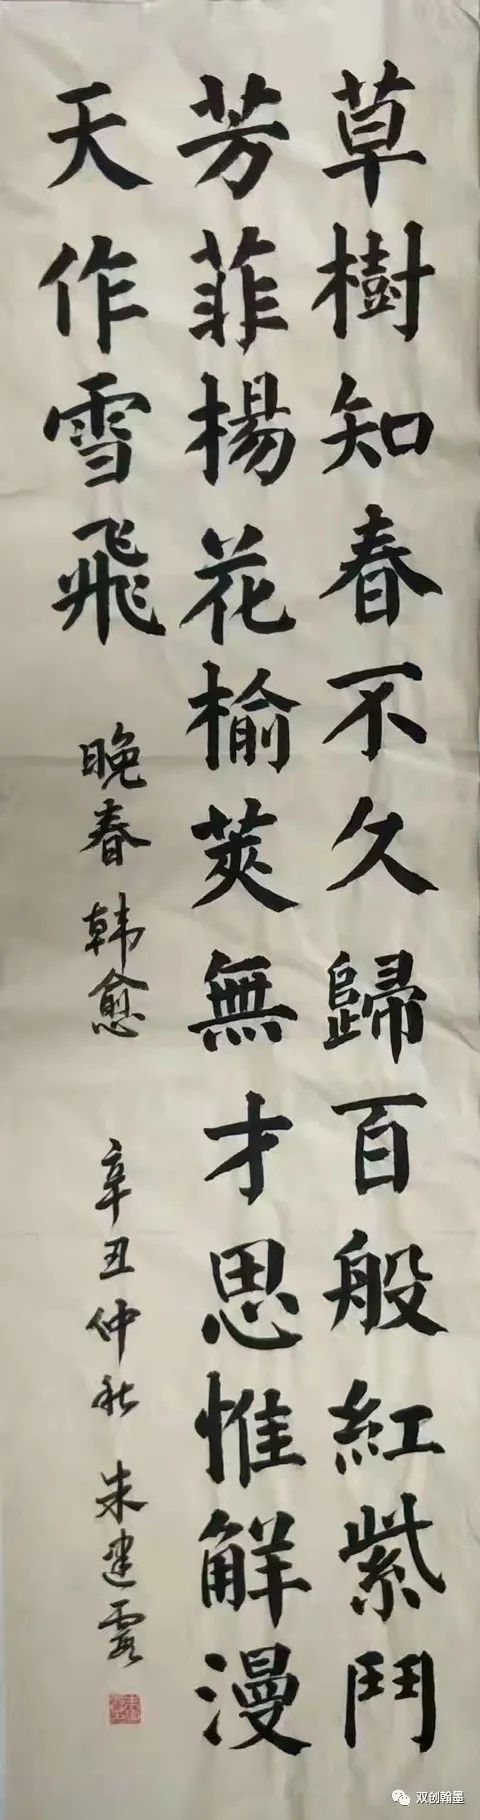 草樹知春不久歸百般紅紫鬥
芳菲楊花榆莢無才思惟解漫
天作雪飛
晚春 韩愈 辛丑仲秋 朱建霞
双创翰墨